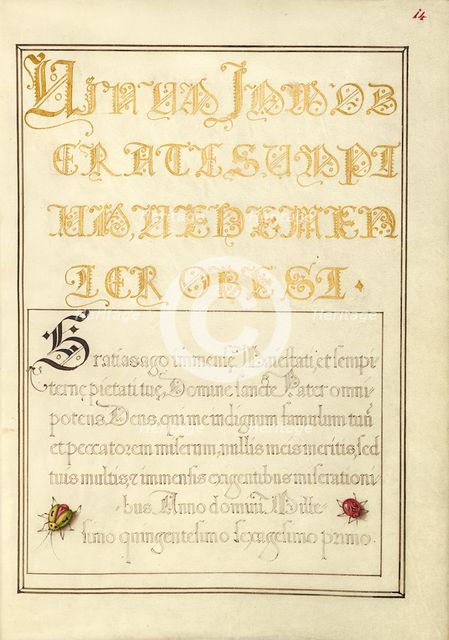 14
VINUM IMMOD
ERATE SUMPT
UM, VEHEMEN
TER OBEST.
Gratias ago immensę Maiestati, et sempi
ternę pietati tuę, Domine sancte Pater omni
potens Deus, qui me indignum famulum tuū
et peccatorem miserum, nullis meis meritis sed
tuis multis, & immensis exigentibus miserationi
bus. Anno domini Mille
simo quingentesimo sexagesimo primo.